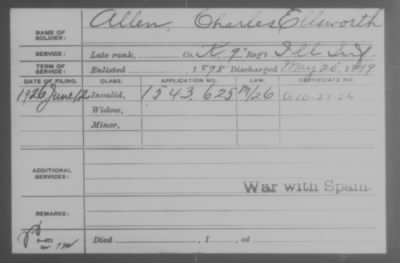 Allen, Charles Ellsworth
NAME OF SOLDIER:
SERVICE: Late rank, Co. K, 9" Reg't Ill. Inf.
TERM OF SERVICE: Enlisted , 1898 Discharged May 20, 1899
DATE OF FILING. CLASS. APPLICATION NO. LAW. CERTIFICATE NO.
1926 June 12 Invalid, 1543.625 M/26
Widow,
Minor,
ADDITIONAL SERVICES:
War with Spain.
REMARKS:
Died , 1 , at